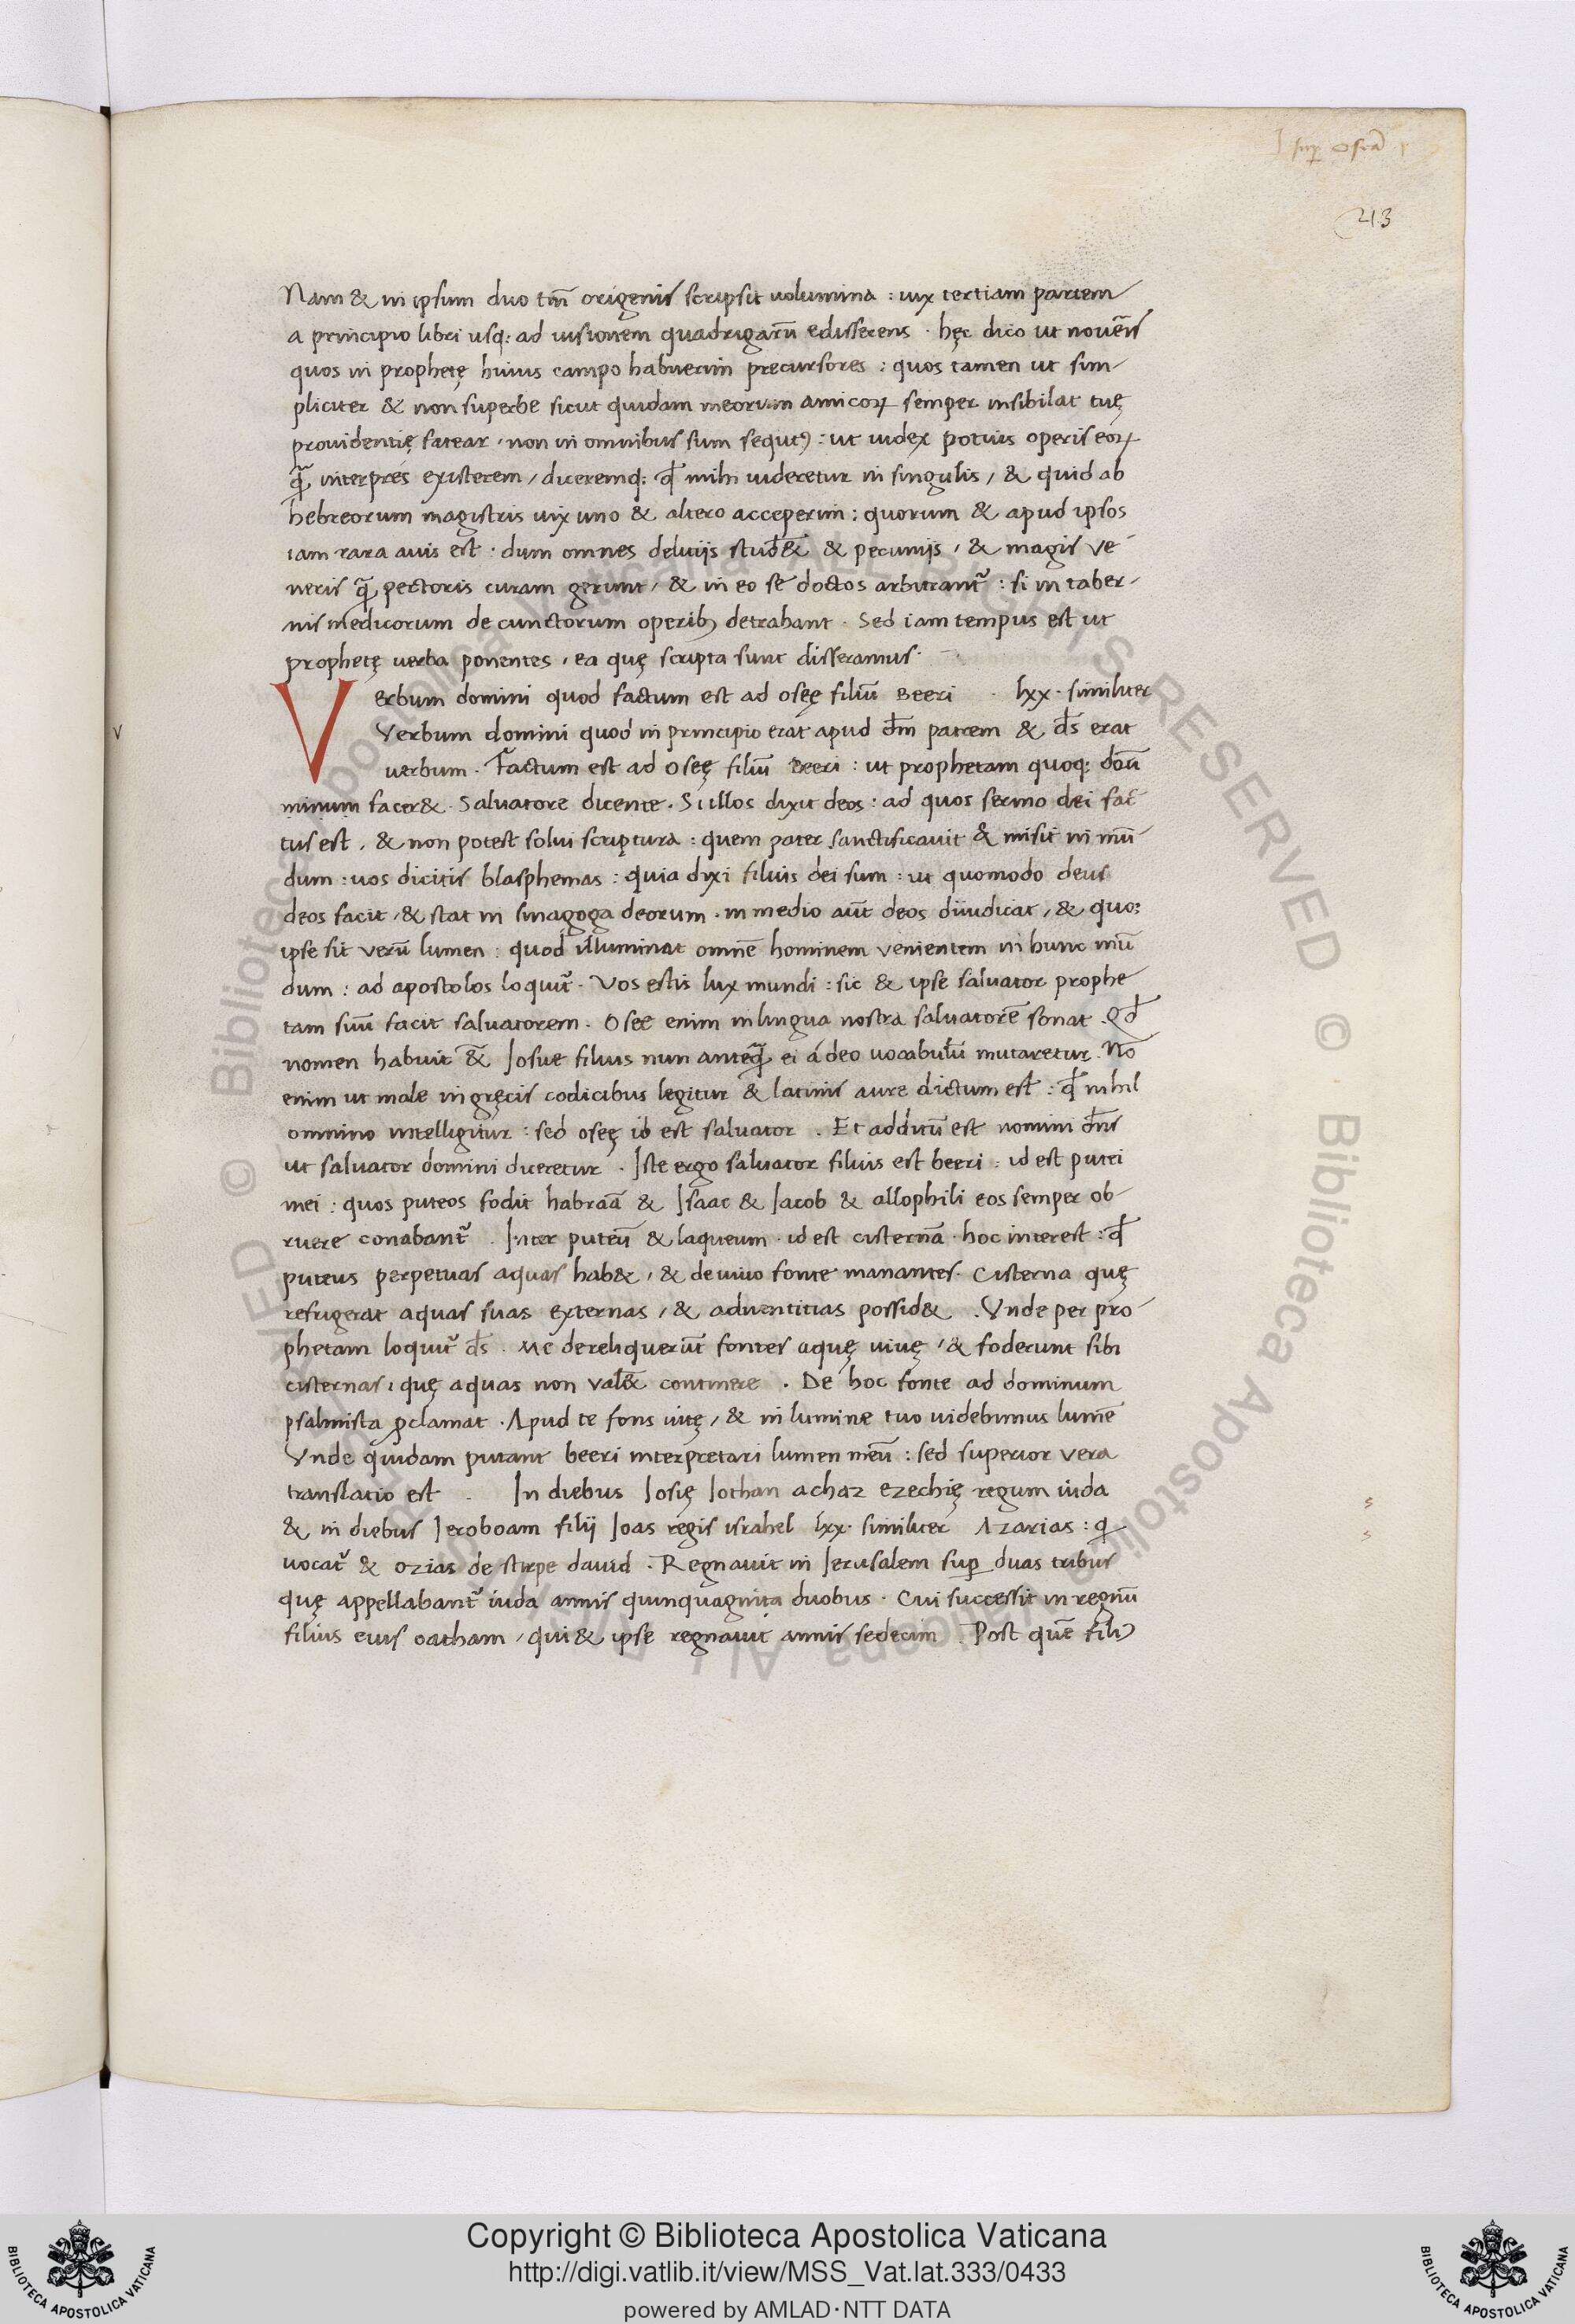 sup̲ oseā
213
Nam & in ipsum duo tm̄ origenis scripsit uolumina : uix tertiam partem
a principio libri usq; ad uisionem quadrigarū edisserens · hęc dico ut nouēis
quos in prophetę huius campo habuerim precursores : quos tamen ut sim-
pliciter & non superbe sicut quidam meorum amicoꝝ semper insibilat tuę
prouidentię fatear, non in omnibus sum sequtꝰ : ut iudex potius operis eoꝝ
q̄ꝫ interpres existerem, diceremq; qđ mihi uideretur in singulis, & quid ab
hebreorum magistris uix uno & altero acceperim : quorum & apud ipsos
iam rara auis est : dum omnes delitijs stud& & pecunijs, & magis ve-
neris q̄ꝫ pectoris curam gerunt, & in eo se doctos arbitrant᷑ : si in taber-
nis medicorum de cunctorum operibꝫ detrahant · Sed iam tempus est ut
prophetę uerba ponentes, ea quę scripta sunt disseramus ·
Verbum domini quod factum est ad oseę filiū Beeri · lxx · similiter
Verbum domini quod in principio erat apud dm̄ patrem & ds̄ erat
uerbum . Factum est ad oseę filiū Beeri : ut prophetam quoq; dom̄
minum facer& . Saluatore dicente . Si illos dixit deos : ad quos sermo dei fac̄
tus est, & non potest solui scriptura : quem pater sanctificauit & misit in mū
dum : uos dicitis blasphemas : quia dixi filius dei sum : ut quomodo deus
deos facit, & stat in sinagoga deorum . in medio aūt deos diiudicat, & quo:
ipse sit verū lumen : quod illuminat omnē hominem venientem in hunc mū
dum : ad apostolos loquit᷑ . Vos estis lux mundi : sic & ipse saluator prophe
tam suū facit saluatorem . Oseę enim in lingua nostra saluatorē sonat . Qđ
nomen habuit & Iosue filius nun anteq̄ꝫ ei á deo uocabulū mutaretur . Nō
enim ut male in gręcis codicibus legitur & latinis aure dictum est : qđ nihil
omnino intelligitur : sed oseę id est saluator . Et additū est nomini dn̄s
ut saluator domini diceretur . Iste ergo saluator filius est beeri : id est putei
mei : quos puteos fodit habraā & Isaac & Iacob & allophili eos semper ob-
ruere conabant᷑ . Inter puteū & laqueum · id est cisternā · hoc interest : qđ
puteus perpetuas aquas hab&, & de uiuo fonte manantes . Cisterna quę
refugerat aquas suas externas, & aduentitias possid& . Vnde per pro-
phetam loquit᷑ ds̄ . Me dereliquerūt fontes aquę uiuę, & foderunt sibi
cisternas, quę aquas non val& continere . De hoc fonte ad dominum
psalmista ꝓclamat . Apud te fons uitę, & in lumine tuo uidebimus lumē
Vnde quidam putant beeri interpretari lumen meū : sed superior vera
translatio est . In diebus Iosię Iothan achaz ezechię regum iuda
& in diebus Ieroboam filij Ioas regis israhel lxx · similiter Azarias : q̲
uocat᷑ & ozias de stirpe dauid . Regnauit in Ierusalem sup̲ duas tribus
quę appellabant᷑ iuda annis quinquaginta duobus . Cui successit in regnū
filius eius oatham, qui & ipse regnauit annis sedecim . Post quē filiꝰ
Copyright © Biblioteca Apostolica Vaticana
http://digi.vatlib.it/view/MSS_Vat.lat.333/0433
powered by AMLAD·NTT DATA